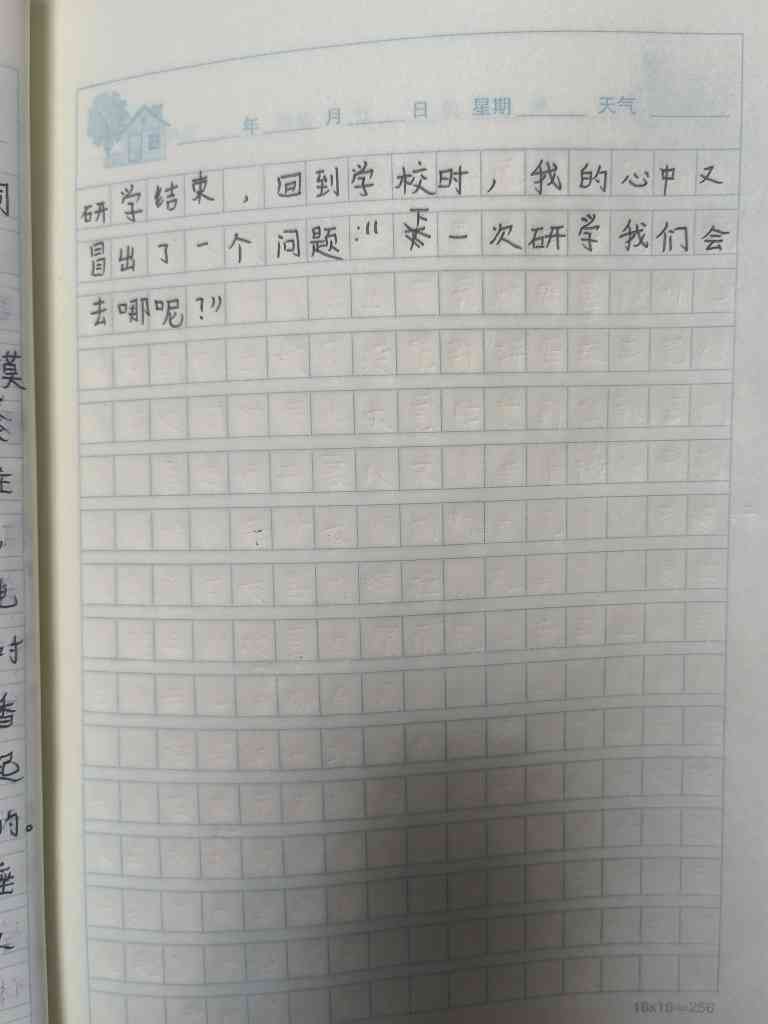 年 月 日 星期 天气
研学结束，回到学校时，我的心中又
冒出了一个问题：“下一次研学我们会
去哪呢？”
16x16=256
词
莫
在
，
地
时
香
色
的。
座